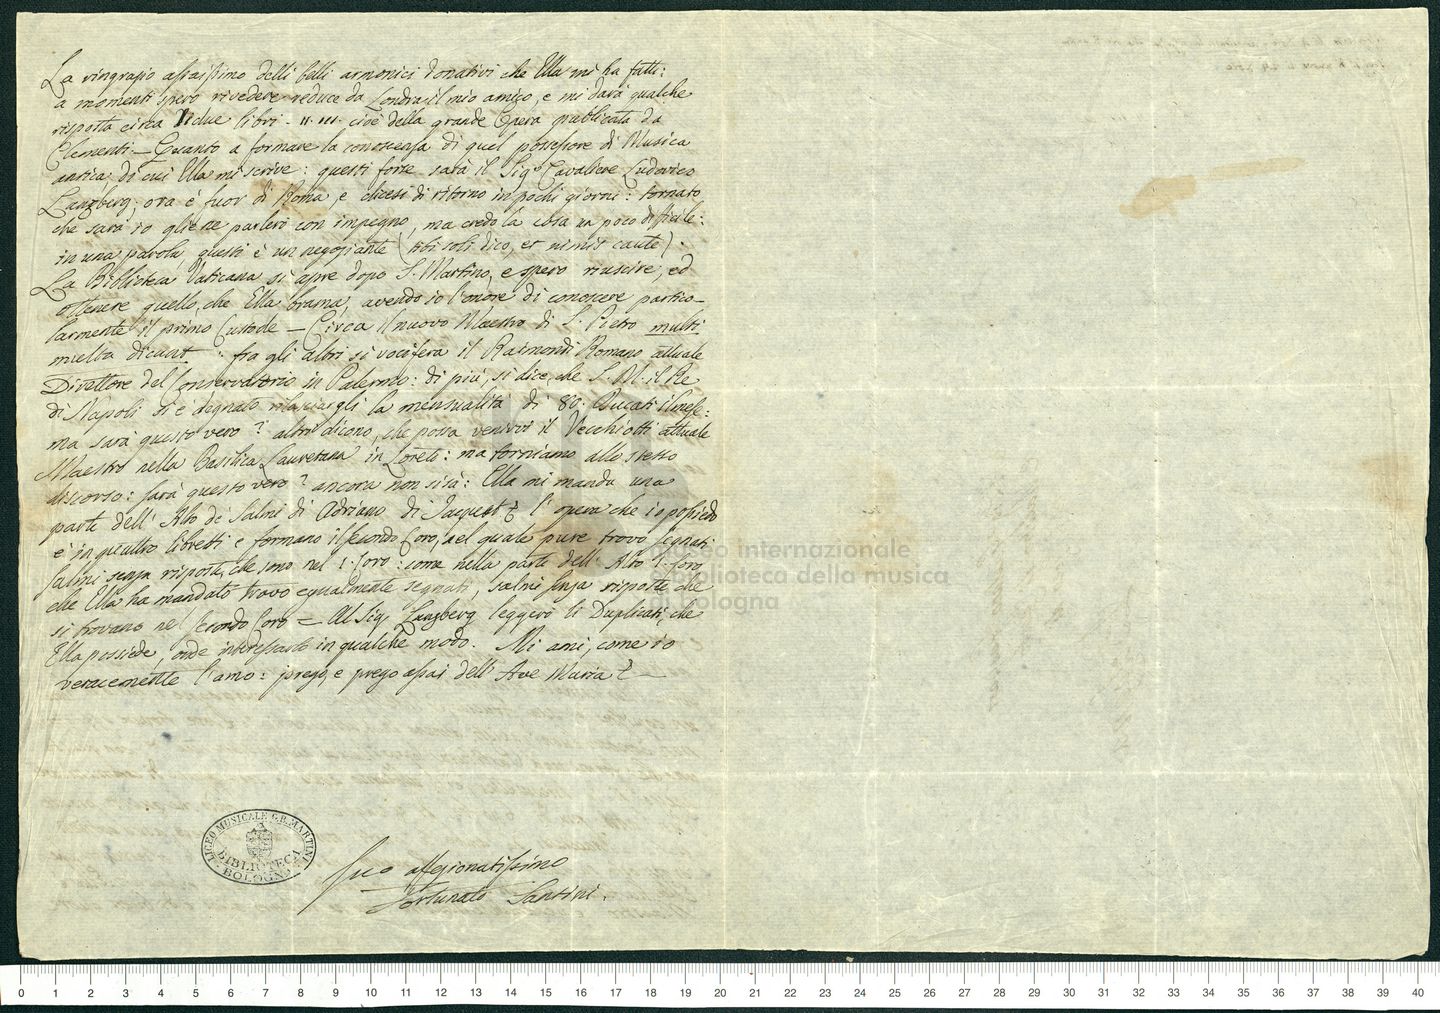 La ringrazio assaissimo delli belli armonici donativi che Ella mi ha fatti:
a momenti spero rivedere reduce da Londra il mio amico, e mi darà qualche
risposta circa li due libri - II. III. cioè della grande Opera pubblicata da
Clementi — Quanto a formare la conoscenza di quel possessore di Musica
antica, di cui Ella mi scrive: questi forse sarà il Sigr Cavaliere Ludovico
Lanzberg: ora è fuor di Roma, e dicesi di ritorno in pochi giorni: tornato
che sarà io gliene parlerò con impegno, ma credo la cosa un poco difficile:
in una parola questi è un negoziante (tibi soli dico, et nimis caute).
La Biblioteca Vaticana si apre dopo S. Martino, e spero riuscire, ed
ottenere quello, che Ella brama, avendo io l'onore di conoscere partico-
larmente il primo Custode — Circa il nuovo Maestro di S. Pietro multi
multa dicunt: fra gli altri si vocifera il Raimondi Romano attuale
Direttore del Conservatorio in Palermo: di più, si dice, che S. M. il Re
di Napoli si è degnato rilasciargli la mensualità di 80. Ducati il mese:
ma sarà questo vero? altri dicono, che possa venirvi il Vecchiotti attuale
Maestro nella Basilica Lauretana in Loreto: ma torniamo allo stesso
discorso: sarà questo vero? ancora non si sà: Ella mi manda una
parte dell' Alto de' Salmi di Adriano, di Jacquet & l'opera che io possiedo
è in quattro libretti e formano il secondo Coro, nel quale pure trovo segnati
Salmi senza risposte, che sono nel 1. Coro: come nella parte dell' Alto 1. Coro
che Ella ha mandato trovo egualmente segnati, salmi senza risposte, che
si trovano nel secondo Coro = Al Sig. Lanzberg leggerò li Duplicati, che
Ella possiede, onde interessarlo in qualche modo. Mi ami, come io
veracemente l'amo: prego, e prego assai dell' Ave Maria &—
Suo affezionatissimo
Fortunato Santini.
LICEO MUSICALE G.B. MARTINI
BIBLIOTECA
BOLOGNA
museo internazionale
e biblioteca della musica
di bologna
0 1 2 3 4 5 6 7 8 9 10 11 12 13 14 15 16 17 18 19 20 21 22 23 24 25 26 27 28 29 30 31 32 33 34 35 36 37 38 39 40